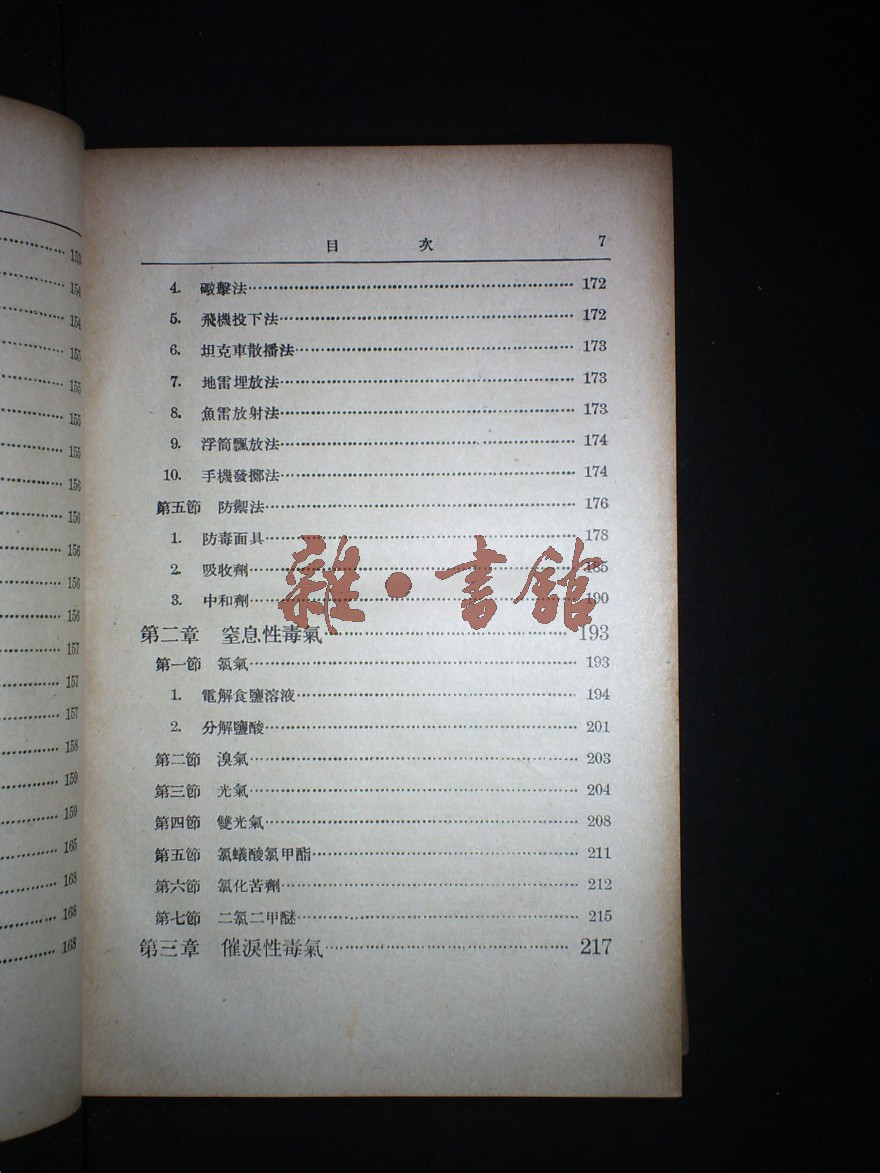 153
154
154
155
155
155
155
156
156
156
156
156
157
157
157
158
159
159
165
168
168
168
目 次 7
4. 礮擊法 172
5. 飛機投下法 172
6. 坦克車散播法 173
7. 地雷埋放法 173
8. 魚雷放射法 173
9. 浮筒飄放法 174
10. 手機發擲法 174
第五節 防禦法 176
1. 防毒面具 178
2. 吸收劑 185
3. 中和劑 190
雜·書館
第二章 窒息性毒氣 193
第一節 氯氣 193
1. 電解食鹽溶液 194
2. 分解鹽酸 201
第二節 溴氣 203
第三節 光氣 204
第四節 雙光氣 208
第五節 氯蟻酸氯甲酯 211
第六節 氯化苦劑 212
第七節 二氯二甲醚 215
第三章 催淚性毒氣 217